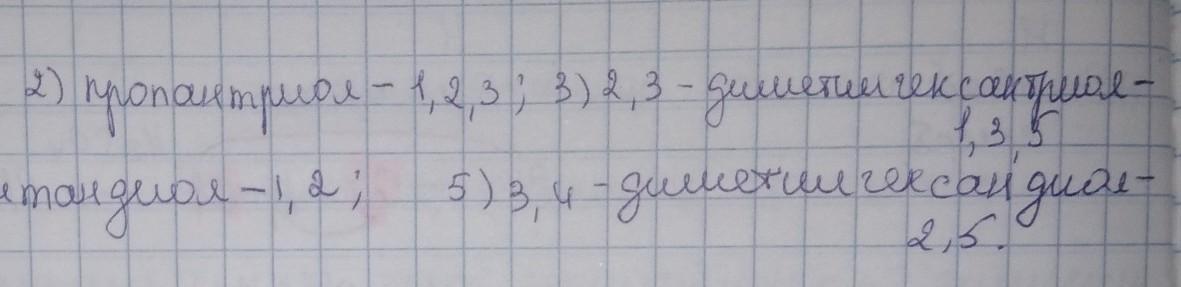 2) пропантриол-1,2,3; 3) 2,3-диметилгексантриол-
1,3,5
тандиол-1,2; 5) 3,4-диметилгександиол-
2,5.